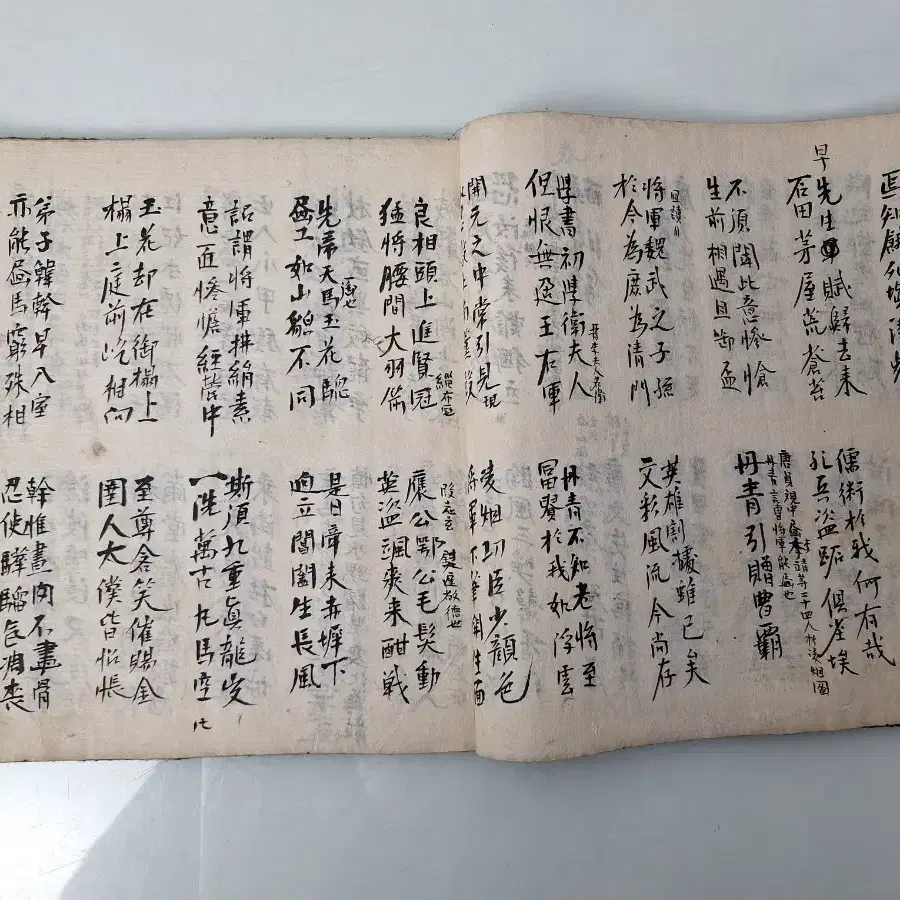 早
先生賦歸去来
石田茅屋荒蒼苔
儒術於我何有哉
孔丘盜跖俱塵埃
不須聞此意慘愴
生前相遇且銜盃
丹青引贈曹霸
將軍魏武之子孫
於今為庶為清門
英雄割據雖已矣
文彩風流今尚存
學書初學衛夫人
但恨無過王右軍
丹青不知老將至
富貴於我如浮雲
開元之中常引見現
凌烟功臣少顔色
將軍下筆開生面
良相頭上進賢冠
猛將腰間大羽箭
褒公鄂公毛髮動
英姿颯爽来酣戰
先帝天馬玉花驄
畫工如山貌不同
是日牽来赤墀下
迥立閶闔生長風
詔謂將軍拂絹素
意匠慘憺經營中
斯須九重眞龍出
一洗萬古凡馬空
玉花却在御榻上
榻上庭前屹相向
至尊含笑催賜金
圉人太僕皆惆悵
弟子韓幹早入室
亦能畫馬窮殊相
幹惟畫肉不畫骨
忍使驊騮气凋喪